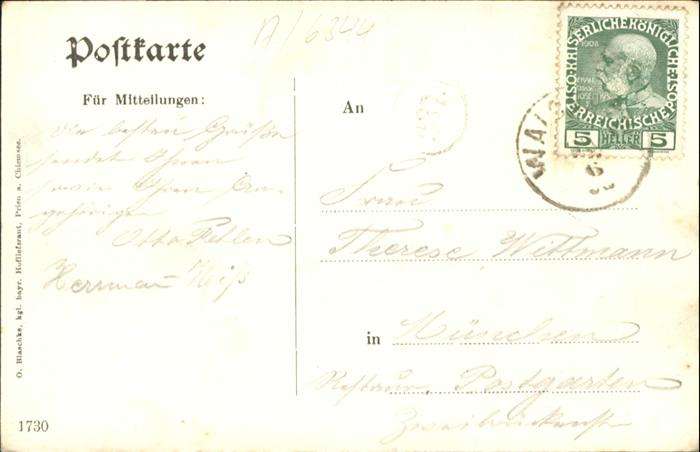 A/6844
Postkarte
Für Mitteilungen:
Die besten Grüße
sendet Ihnen
sowie Ihren An
gehörigen
Otto
Herrman Weiß
O. Blaschke, kgl. bayr. Hoflieferant, Prien a. Chiemsee.
1730
An
Frau
Therese Wittmann
in München
Restaur. Postgarten
KAISERLICHE KÖNIGLICHE
ÖSTERREICHISCHE POST
1908
FRANZ
JOSEF
5 HELLER 5